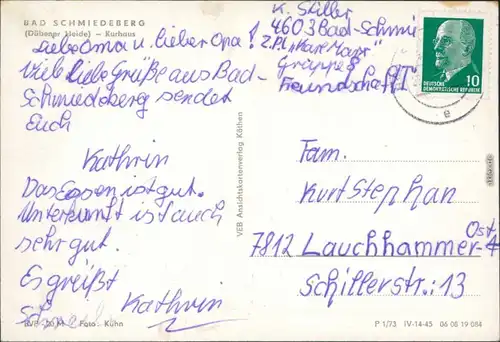 BAD SCHMIEDEBERG
(Dübener Heide) – Kurhaus
Liebe Oma u. lieber Opa!
Viel liebe Grüße aus Bad-
Schmiedeberg sendet
Euch
Kathrin
Das Essen ist gut.
Unterkunft ist auch
sehr gut.
Es grüßt
Kathrin
Foto: Kühn
VEB Ansichtskartenverlag Köthen
K. Stiller
4603 Bad-Schmi
Z.Pl. "Karl Marx"
Gruppe 8
Freundschaft
DEUTSCHE
DEMOKRATISCHE REPUBLIK
10
e
Fam.
Kurt Stephan
7812 Lauchhammer-Ost 4
Schillerstr. 13
P 1/73 IV-14-45 06 08 19 084